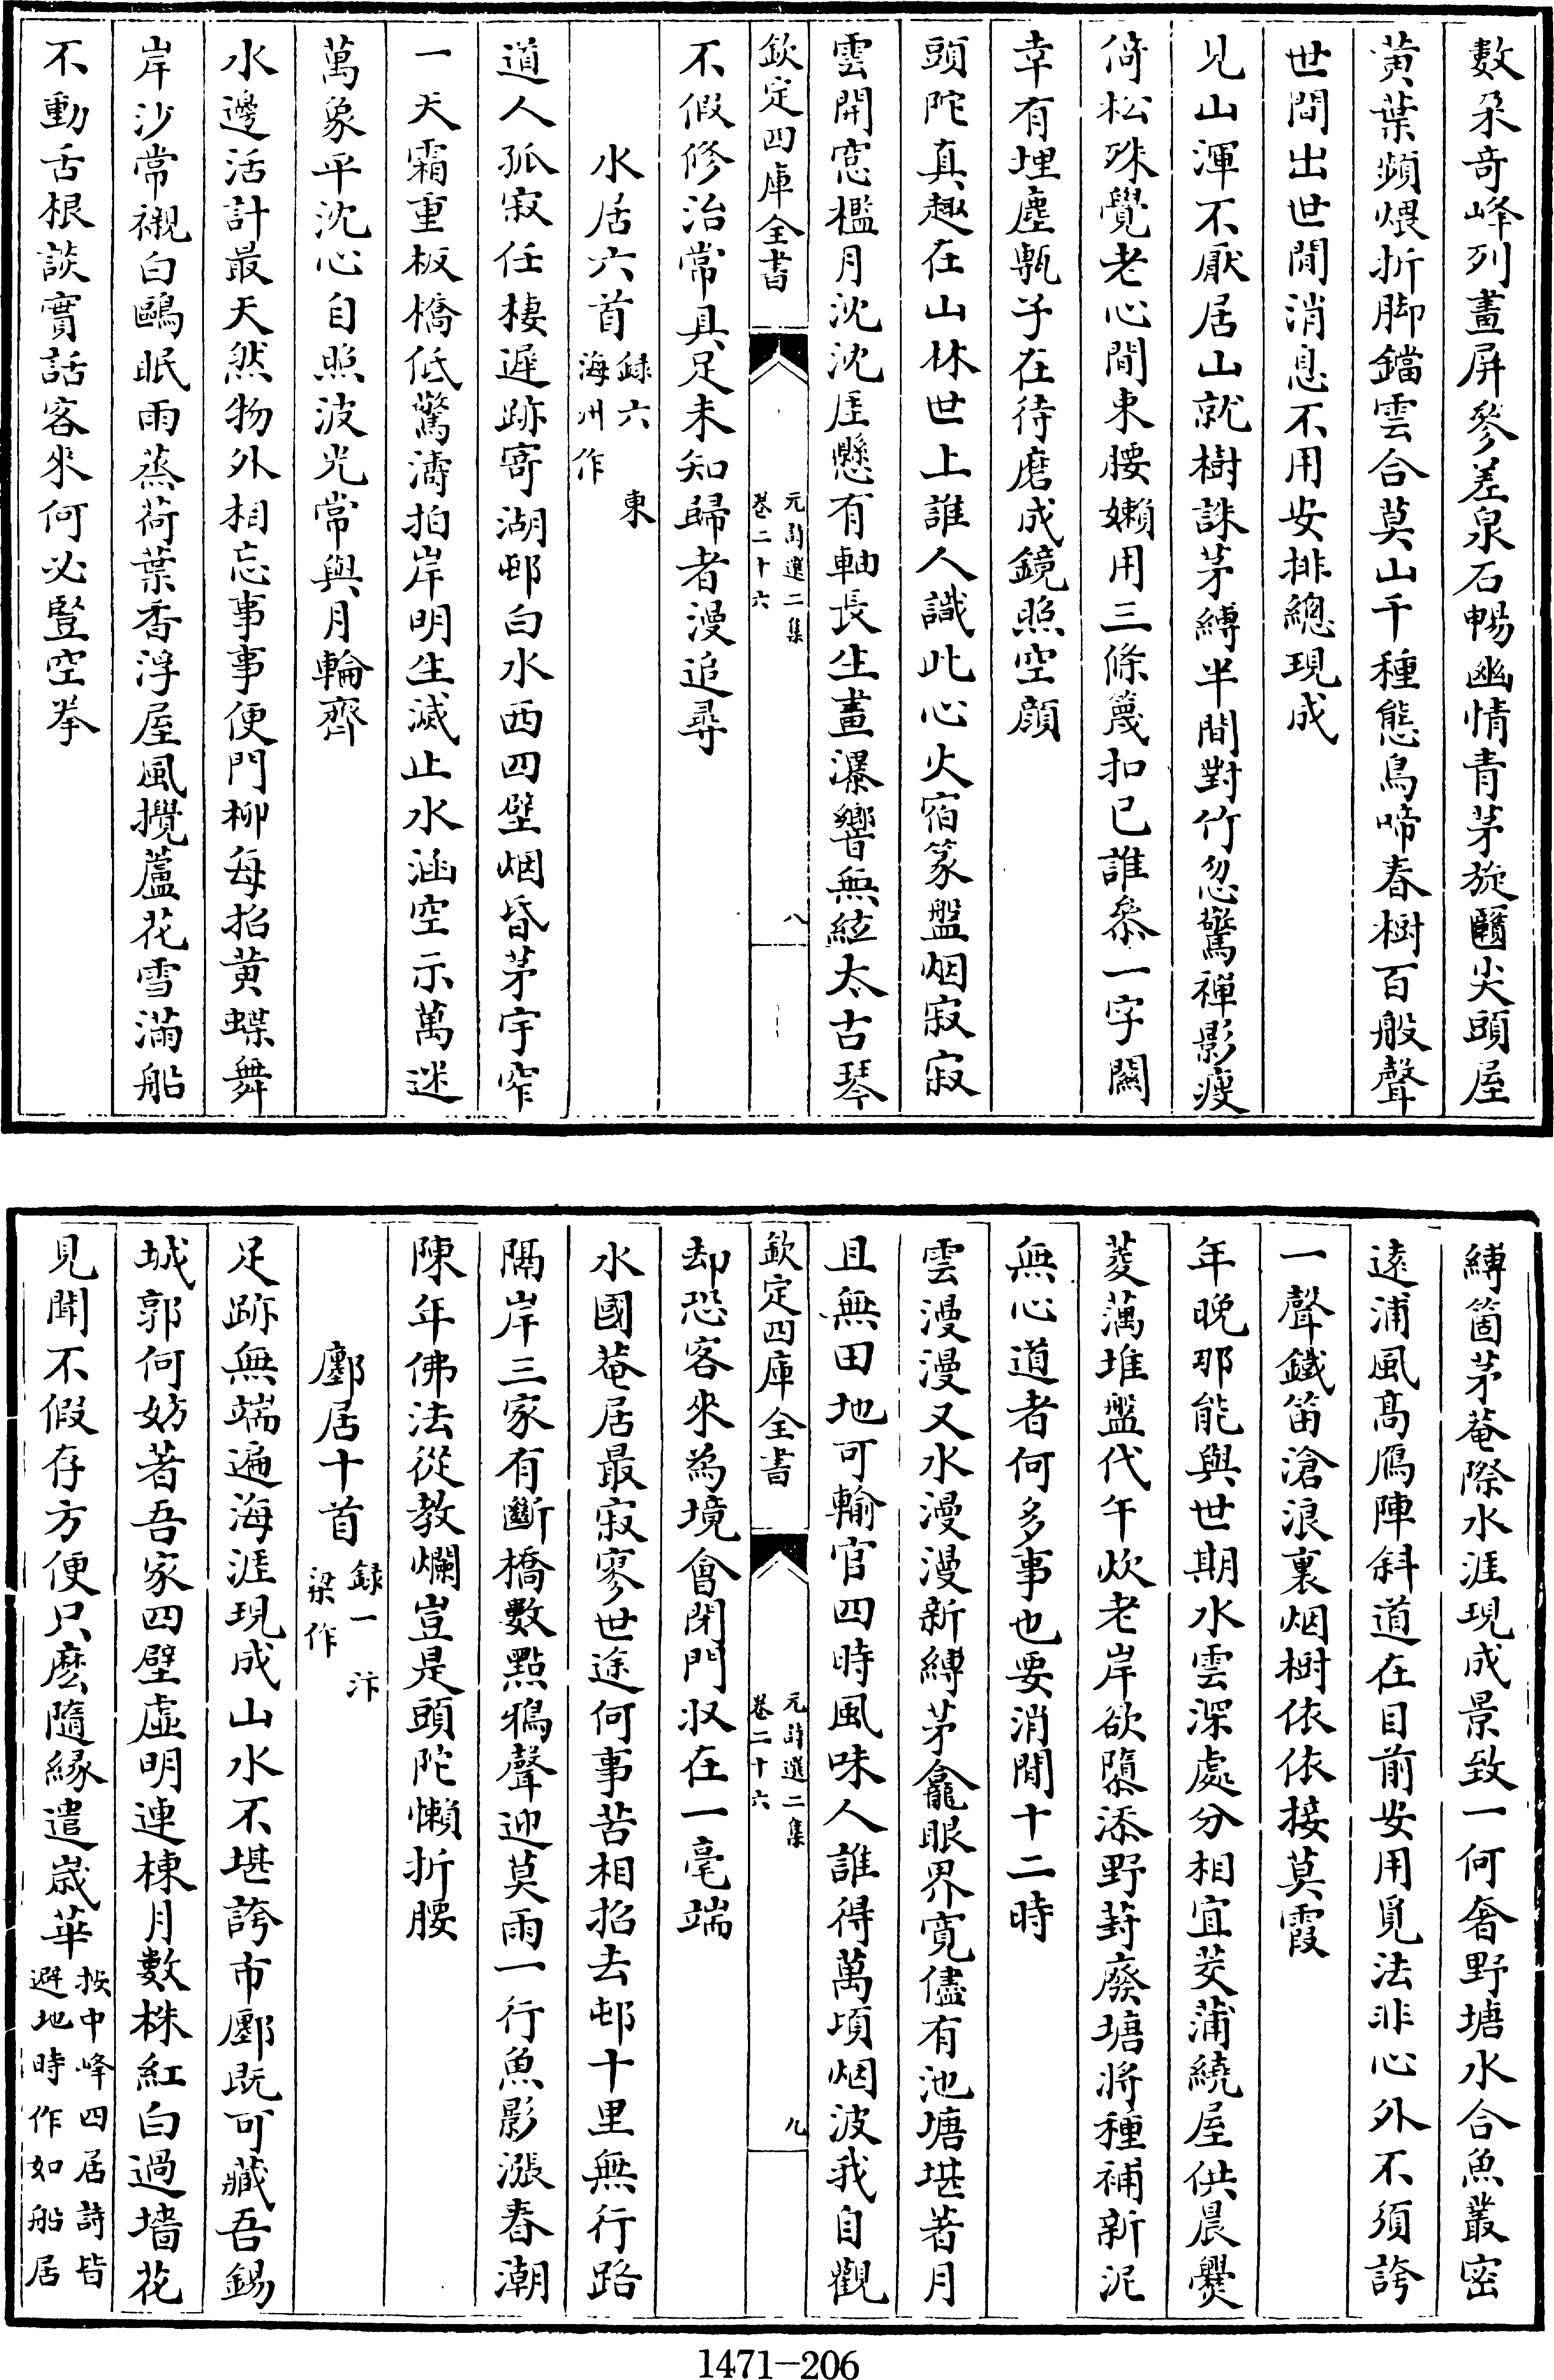 數朶奇峰列畫屏參差泉石暢幽情青茅旋𨣯尖頭屋
黃葉頻煨折脚鐺雲合莫山千種態鳥啼春樹百般聲
世間出世間消息不用安排總現成
見山渾不厭居山就樹誅茅縛半間對竹忽驚禪影瘦
倚松殊覺老心閒束腰嬾用三條篾扣已誰叅一字關
幸有埋塵甎子在待磨成鏡照空顔
頭陀真趣在山林世上誰人識此心火宿篆盤烟寂寂
雲開窓檻月沈沈厓懸有軸長生畫瀑響無絃太古琴
欽定四庫全書
元詩選二集
卷二十六
八
不假修治常具足未知歸者漫追尋
水居六首録六 東
海州作
道人孤寂任棲遲跡寄湖邨白水西四壁烟昏茅宇窄
一天霜重板橋低驚濤拍岸明生滅止水涵空示萬迷
萬象平沈心自照波光常與月輪齊
水邊活計最天然物外相忘事事便門柳每招黄蝶舞
岸沙常襯白鷗眠雨蒸荷葉香浮屋風攪蘆花雪滿船
不動舌根談實話客來何必豎空拳
縛箇茅菴際水涯現成景致一何奢野塘水合魚叢密
遠浦風髙鴈陣斜道在目前安用覓法非心外不須誇
一聲鐵笛滄浪裏烟樹依依接莫霞
年晚那能與世期水雲深處分相宜茭蒲繞屋供晨爨
菱藕堆盤代午炊老岸欲隳添野葑廢塘將種補新泥
無心道者何多事也要消閒十二時
雲漫漫又水漫漫新縛茅龕眼界寛儘有池塘堪著月
且無田地可輸官四時風味人誰得萬頃烟波我自觀
欽定四庫全書
元詩選二集
卷二十六
九
却恐客來為境會閉門収在一毫端
水國菴居最寂寥世途何事苦相招去邨十里無行路
隔岸三家有斷橋數點鴉聲迎莫雨一行魚影漲春潮
陳年佛法從教爛豈是頭陀懶折腰
鄽居十首録一 汴
梁作
足跡無端遍海涯現成山水不堪誇市鄽既可藏吾錫
城郭何妨著吾家四壁虛明連棟月數株紅白過墻花
見聞不假存方便只麽隨縁遣嵗華按中峰四居詩皆
避地時作如船居
1471-206